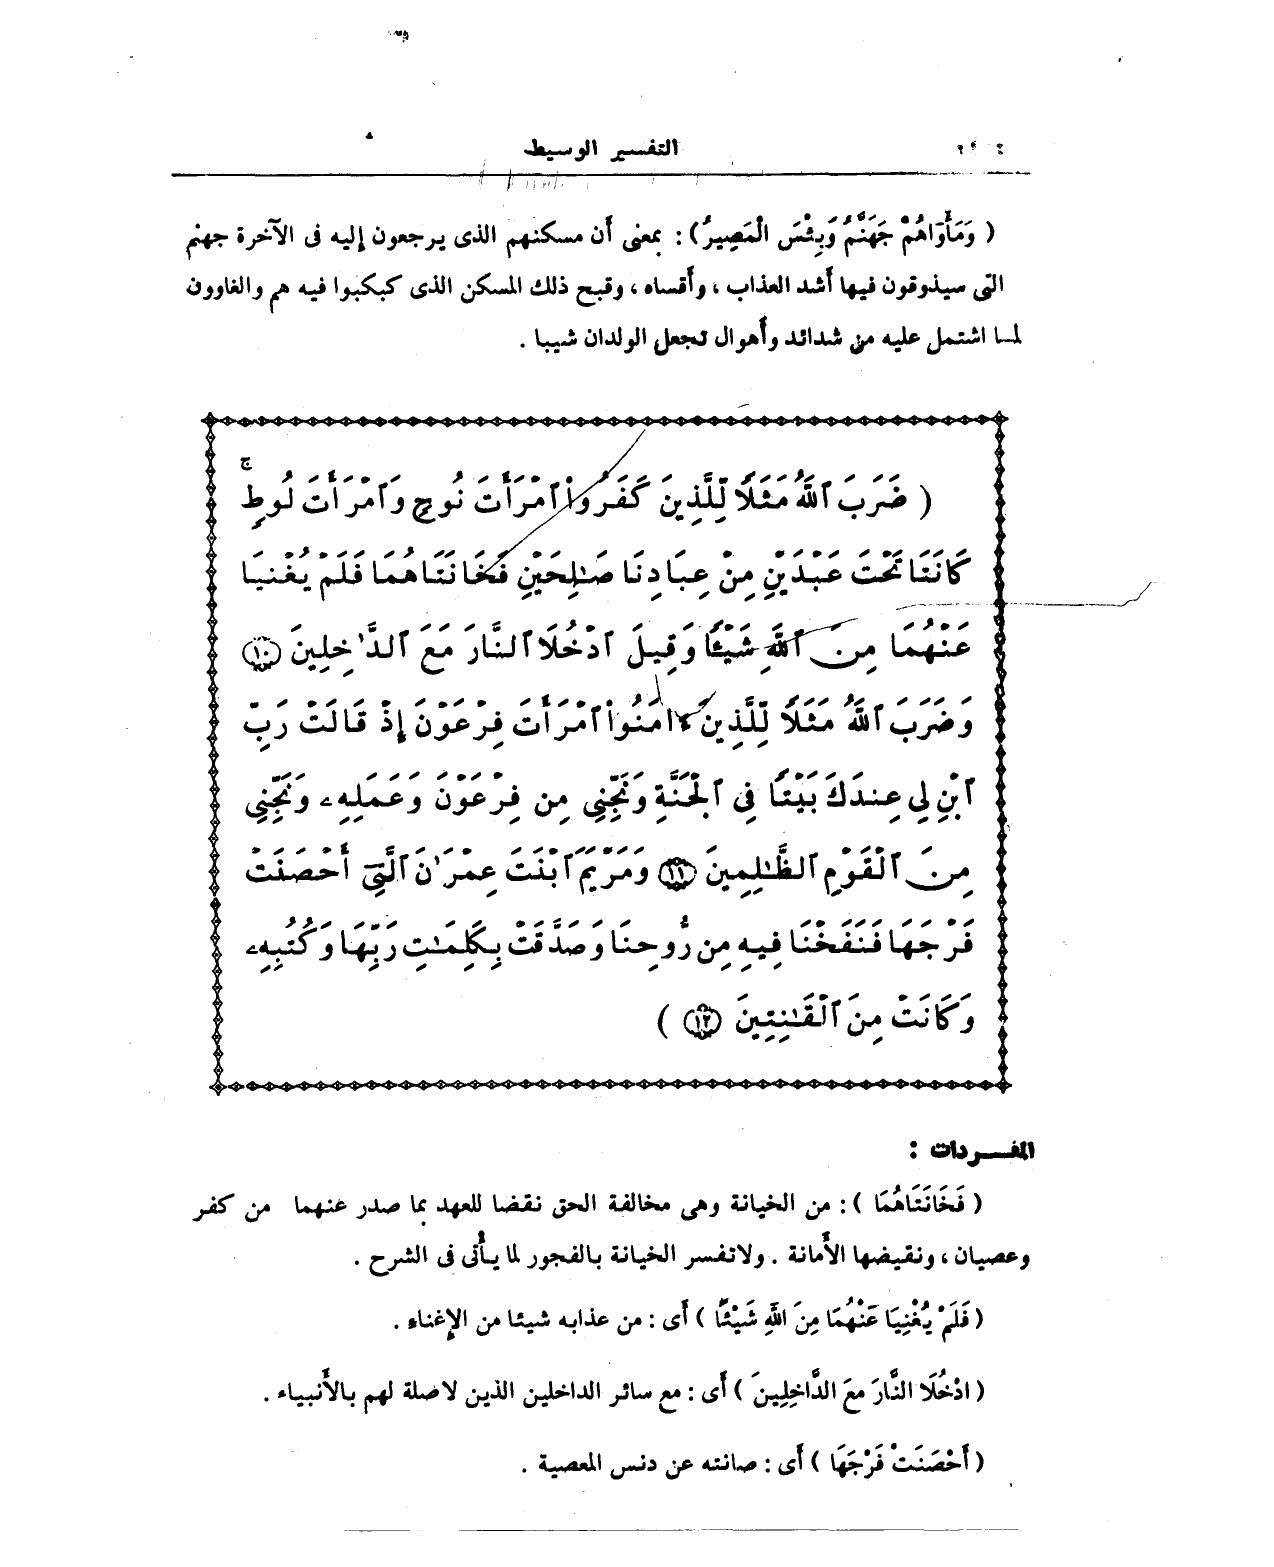 التفسير الوسيط
( وَمَأْوَاهُمْ جَهَنَّمُ وَبِئْسَ الْمَصِيرُ ) : بمعنى أن مسكنهم الذى يرجعون إليه فى الآخرة جهنم
التى سيذوقون فيها أشد العذاب ، وأقساه ، وقبح ذلك المسكن الذى كبكبوا فيه هم والغاوون
لمـا اشتمل عليه من شدائد وأهوال تجعل الولدان شيبا .
( ضَرَبَ ٱللَّهُ مَثَلًا لِّلَّذِينَ كَفَرُوا۟ ٱمْرَأَتَ نُوحٍ وَٱمْرَأَتَ لُوطٍۚ
كَانَتَا تَحْتَ عَبْدَيْنِ مِنْ عِبَادِنَا صَـٰلِحَيْنِ فَخَانَتَاهُمَا فَلَمْ يُغْنِيَا
عَنْهُمَا مِنَ ٱللَّهِ شَيْـًٔا وَقِيلَ ٱدْخُلَا ٱلنَّارَ مَعَ ٱلدَّٰخِلِينَ ١٠
وَضَرَبَ ٱللَّهُ مَثَلًا لِّلَّذِينَ ءَامَنُوا۟ ٱمْرَأَتَ فِرْعَوْنَ إِذْ قَالَتْ رَبِّ
ٱبْنِ لِى عِندَكَ بَيْتًا فِى ٱلْجَنَّةِ وَنَجِّنِى مِن فِرْعَوْنَ وَعَمَلِهِۦ وَنَجِّنِى
مِنَ ٱلْقَوْمِ ٱلظَّـٰلِمِينَ ١١ وَمَرْيَمَ ٱبْنَتَ عِمْرَٰنَ ٱلَّتِىٓ أَحْصَنَتْ
فَرْجَهَا فَنَفَخْنَا فِيهِ مِن رُّوحِنَا وَصَدَّقَتْ بِكَلِمَـٰتِ رَبِّهَا وَكُتُبِهِۦ
وَكَانَتْ مِنَ ٱلْقَـٰنِتِينَ ١٢ )
المفـــردات :
( فَخَانَتَاهُمَا ) : من الخيانة وهى مخالفة الحق نقضا للعهد بما صدر عنهما من كفر
وعصيان ، ونقيضها الأمانة . ولاتفسر الخيانة بالفجور لما يأتى فى الشرح .
( فَلَمْ يُغْنِيَا عَنْهُمَا مِنَ اللَّهِ شَيْئًا ) أى : من عذابه شيئا من الإغناء .
( ادْخُلَا النَّارَ مَعَ الدَّاخِلِينَ ) أى : مع سائر الداخلين الذين لاصلة لهم بالأنبياء .
( أَحْصَنَتْ فَرْجَهَا ) أى : صانته عن دنس المعصية .